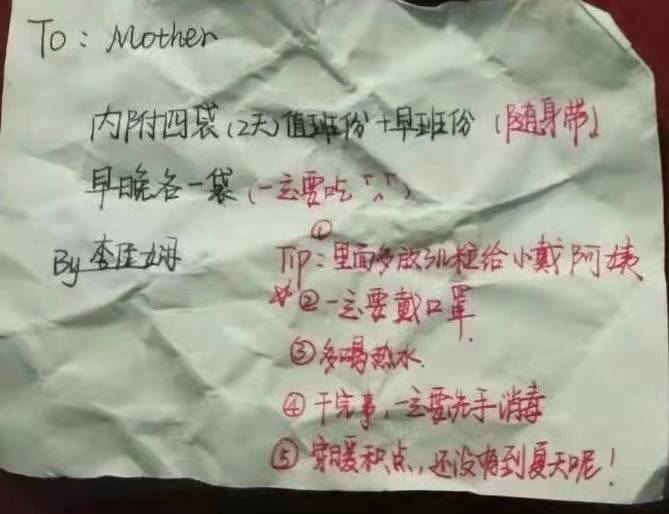 To: Mother
内附四袋(2天)值班份+早班份(随身带)
早晚各一袋(一定要吃
By 李佳
①
TIP:里面多放 粒给小戴阿姨
②一定要戴口罩.
③多喝热水.
④干完事,一定要洗手消毒
⑤穿暖和点,还没有到夏天呢!